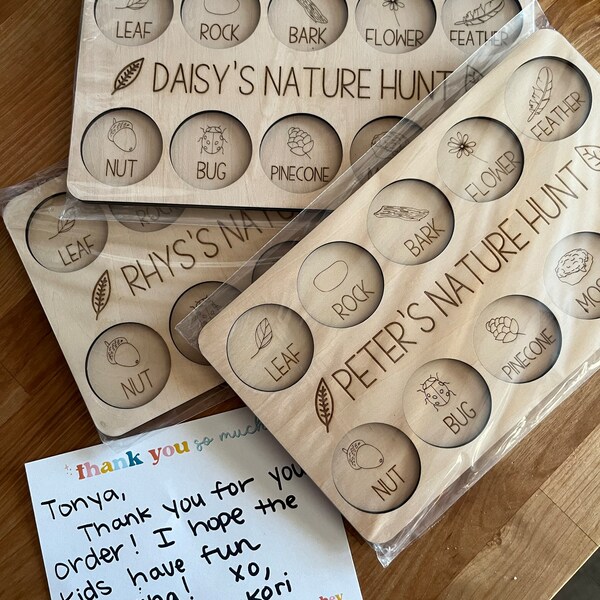 LEAF ROCK BARK FLOWER FEATHER
DAISY'S NATURE HUNT
NUT BUG PINECONE
LEAF
RHYS'S NAT
NUT
FEATHER
FLOWER
BARK
ROCK
LEAF
PETER'S NATURE HUNT
MOS
PINECONE
BUG
NUT
thank you so much
Tonya,
Thank you for you
order! I hope the
kids have fun
xo,
Kori